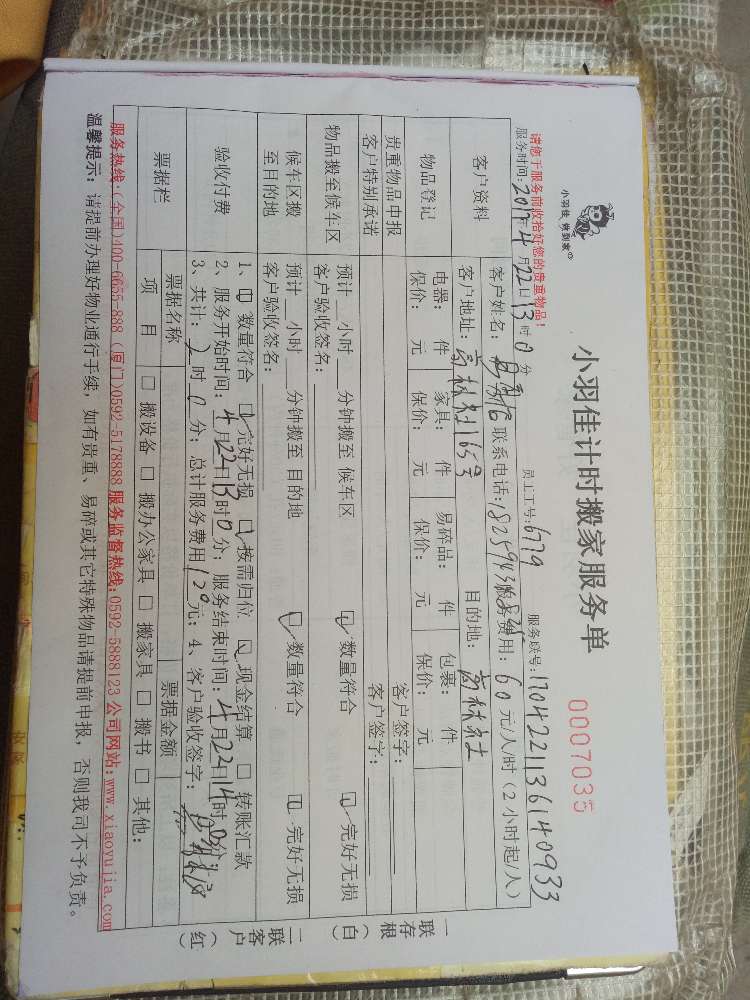 小羽佳 做到家
小羽佳计时搬家服务单
0007035
请您于服务前收拾好您的贵重物品!
服务时间:2017年4月22日13时0分 员工工号:6779 服务联号:170422113614093​3
客户资料
客户姓名: 联系电话: 服务费用:60元/人时(2小时起/人)
客户地址:高林社1653 目的地:高林社
物品登记
电器: 件 家具: 件 易碎品: 件 包裹: 件
保价: 元 保价: 元 保价: 元 保价: 元
贵重物品申报 客户签字:
客户特别承诺 客户签字:
物品搬至候车区
预计 小时 分钟搬至 候车区 数量符合 完好无损
客户验收签名:
候车区搬至目的地
预计 小时 分钟搬至 目的地 数量符合 完好无损
客户验收签名:
验收付费
1、 数量符合 完好无损 按需归位 现金结算 □ 转账汇款
2、服务开始时间:4月22日13时0分; 服务结束时间:4月22日14时0分;
3、共计:2时0分; 总计服务费用120元; 4、客户验收签字:
票据栏
票据名称 票据金额
项 目 □ 搬设备 □ 搬办公家具 □ 搬家具 □ 搬书 □ 其他:
服务热线:(全国)400-6655-888 (厦门)0592-5178888 服务监督热线:0592-5888123 公司网站:www.xiaoyujia.com
温馨提示:请提前办理好物业通行手续,如有贵重、易碎或其它特殊物品请提前申报,否则我司不予负责。
一联存根(白)
二联客户(红)